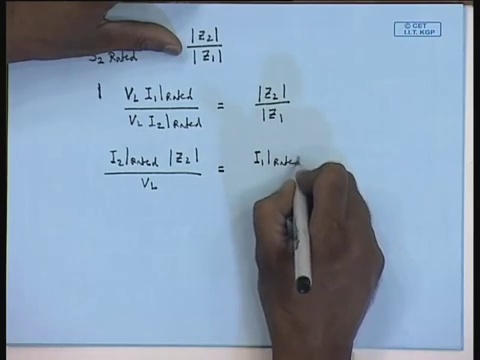 © CET
I.I.T. KGP
S2 Rated |Z2| / |Z1|
VL I1|Rated / VL I2|Rated = |Z2| / |Z1
I2|Rated |Z2| / VL = I1|Rated